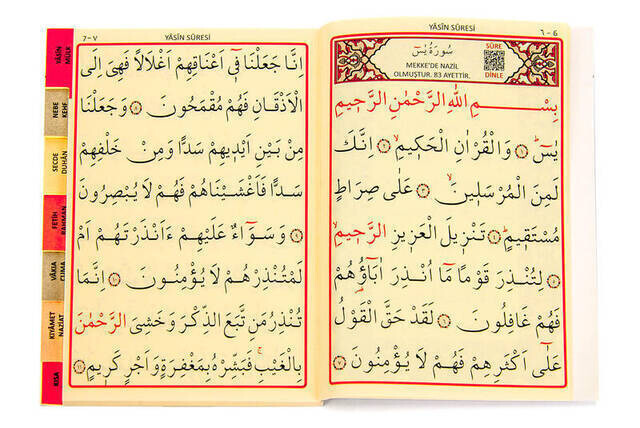 YÂSÎN SÛRESİ
٦ - 6
سُورَةُ يٰسٓ
MEKKE'DE NAZİL
OLMUŞTUR. 83 AYETTİR.
SÛRE
DİNLE
بِسْمِ اللّٰهِ الرَّحْمٰنِ الرَّحٖيمِ
يٰسٓ ۝١ وَالْقُرْاٰنِ الْحَكٖيمِ ۝٢ اِنَّكَ
لَمِنَ الْمُرْسَلٖينَ ۝٣ عَلٰى صِرَاطٍ
مُسْتَقٖيمٍ ۝٤ تَنْزٖيلَ الْعَزٖيزِ الرَّحٖيمِ
۝٥ لِتُنْذِرَ قَوْمًا مَٓا اُنْذِرَ اٰبَٓاؤُ۬هُمْ
فَهُمْ غَافِلُونَ ۝٦ لَقَدْ حَقَّ الْقَوْلُ
عَلٰٓى اَكْثَرِهِمْ فَهُمْ لَا يُؤْمِنُونَ ۝٧
7 - ٧
YÂSÎN SÛRESİ
اِنَّا جَعَلْنَا فٖٓى اَعْنَاقِهِمْ اَغْلَالًا فَهِىَ اِلَى
الْاَذْقَانِ فَهُمْ مُقْمَحُونَ ۝٨ وَجَعَلْنَا
مِنْ بَيْنِ اَيْدٖيهِمْ سَدًّا وَمِنْ خَلْفِهِمْ
سَدًّا فَاَغْشَيْنَاهُمْ فَهُمْ لَا يُبْصِرُونَ
۝٩ وَسَوَٓاءٌ عَلَيْهِمْ ءَاَنْذَرْتَهُمْ اَمْ
لَمْ تُنْذِرْهُمْ لَا يُؤْمِنُونَ ۝١٠ اِنَّمَا
تُنْذِرُ مَنِ اتَّبَعَ الذِّكْرَ وَخَشِىَ الرَّحْمٰنَ
بِالْغَيْبِ فَبَشِّرْهُ بِمَغْفِرَةٍ وَاَجْرٍ كَرٖيمٍ ۝١١
YÂSÎN
MÜLK
NEBE
KEHF
SECDE
DUHÂN
FETİH
RAHMAN
VÂKIA
CUMA
KIYÂMET
NAZİAT
KISA